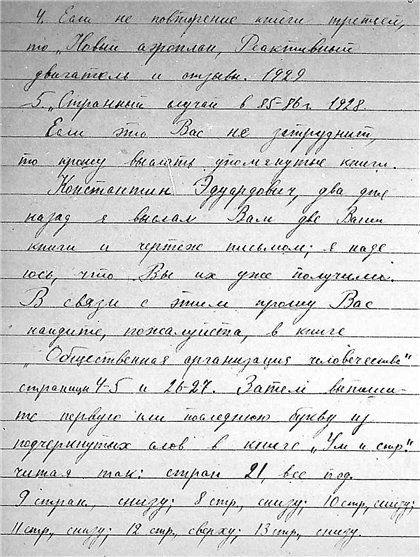 4. Если не повторение книги третьей,
то „Новый аэроплан, Реактивный
двигатель и отзывы. 1929
5. „Странный случай в 85-86 г. 1928.
Если это Вас не затруднит,
то прошу выслать упомянутые книги.
Константин Эдуардович, два дня
назад я выслал Вам две Ваши
книги и чертеж письмом; я наде
юсь, что Вы их уже получили.
В связи с этим прошу Вас
найдите, пожалуйста, в книге
„Общественная организация человечества"
страницы 4-5 и 26-27. Затем выпиши-
те первую или последнюю букву из
подчеркнутых слов в книге „Ум и стр."
читая так: стран 21, все под.
9 стран, снизу; 8 стр, снизу; 10 стр, снизу;
11 стр, снизу; 12 стр, сверху; 13 стр, снизу.